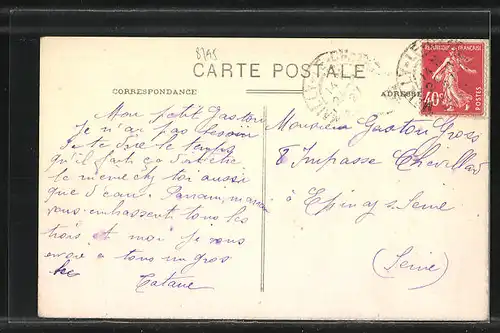 8745
CARTE POSTALE
CORRESPONDANCE
ADRESSE
REPUBLIQUE FRANÇAISE
40c
POSTES
14
21
Mon petit Gaston
Je n'ai pas besoin
de te dire le temps
qu'il fait ça
le même chez toi aussi
que d'eau. Parrain,
vous embrassent tous les
trois et moi je vous
envoie à tous un gros
bec
Tatave
Monsieur Gaston Gross
8 Impasse Chevillard
à Epinay s Seine
(Seine)